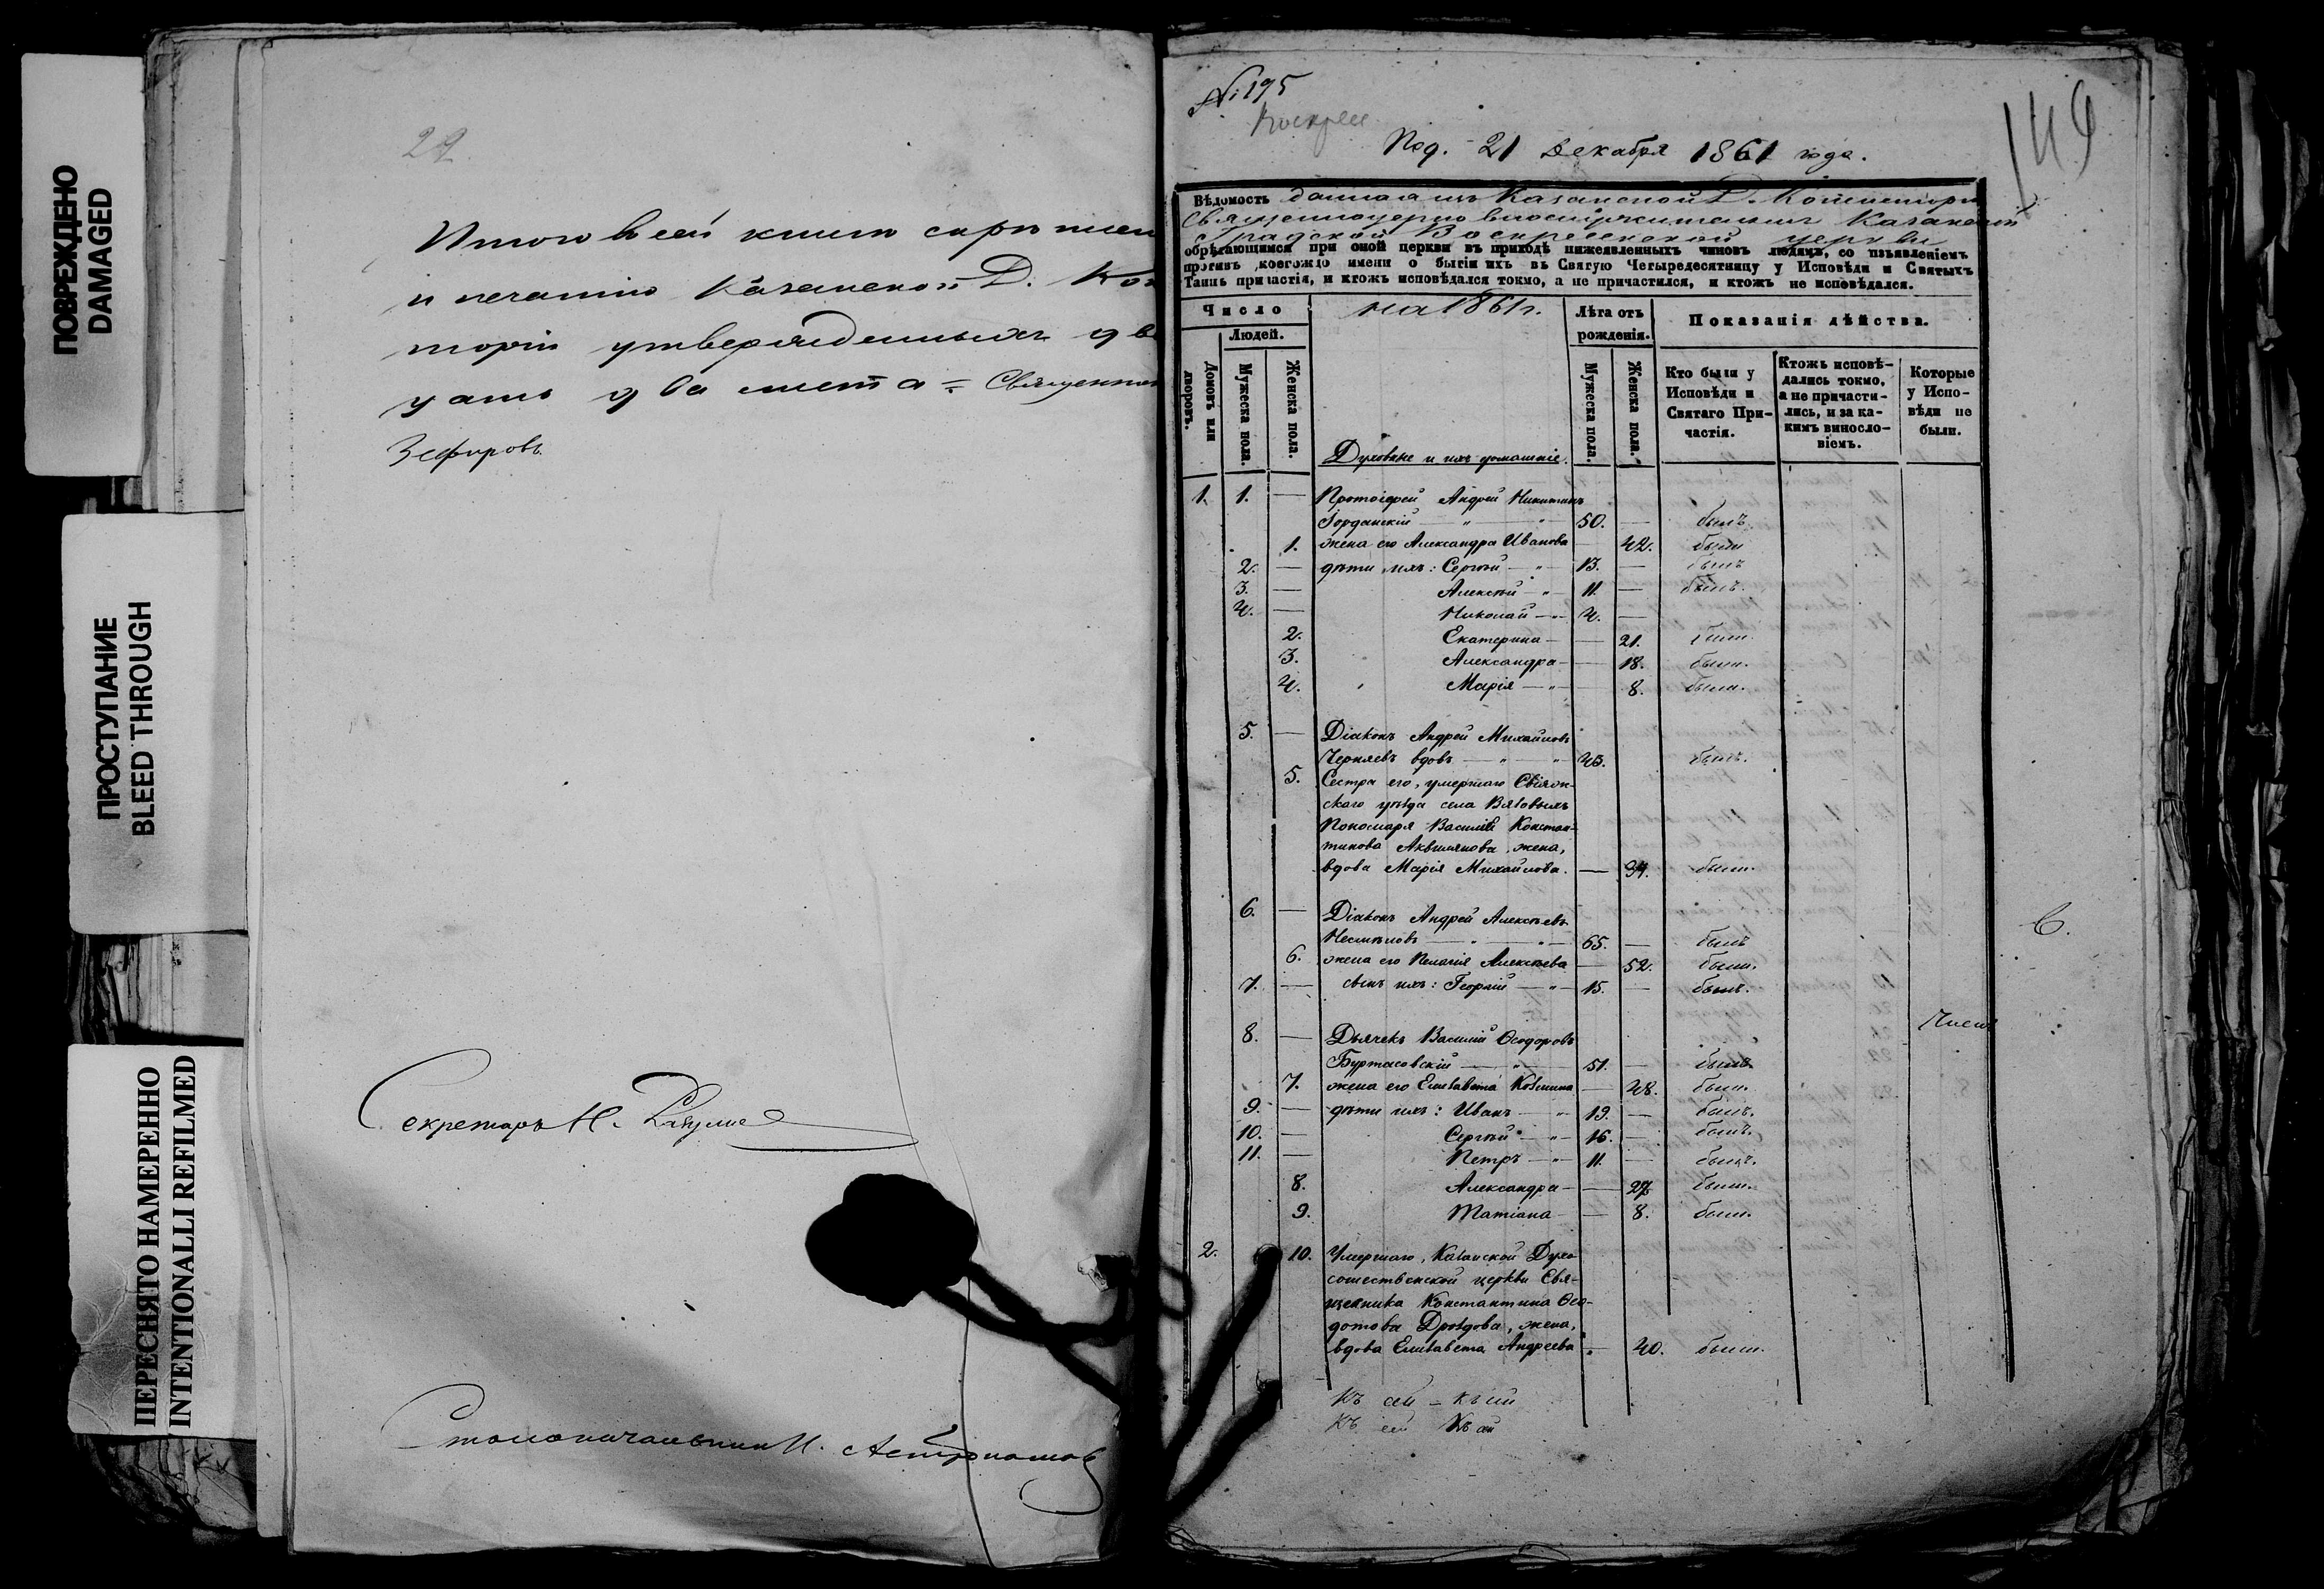 ПОВРЕЖДЕНО
DAMAGED
ПРОСТУПАНИЕ
BLEED THROUGH
ПЕРЕСНЯТО НАМЕРЕННО
INTENTIONALLI REFILMED
29
Итого в сей книге скрепленных
и печатью Казанской Д. Кон
торіи утвержденныхъ два
цать два листа = Священник
Зефировъ
Секретарь Н.
Столоначальникъ И.
№ 195
Воскресе
149
Под. 21 Декабря 1861 года.
Вѣдомость данная изъ Казанской Д. Консисторіи
Священноцерковнослужителямъ Казанской
Градской Воскресенской церкви
обрѣтающимся при оной церкви въ приходѣ нижеявленныхъ чиновъ людяхъ, со изъявленіемъ
противъ коегождо имени о бытіи ихъ въ Святую Четыредесятницу у Исповѣди и Святыхъ
Таинъ причастія, и ктожъ исповѣдался токмо, а не причастился, и ктожъ не исповѣдался.
Число
на 1861 г.
Лѣта отъ рожденія.
Показанія дѣйства.
Людей.
Домовъ или дворовъ.
Мужеска пола.
Женска пола.
Духовные и ихъ домашніе.
Мужеска пола.
Женска пола.
Кто были у Исповѣди и Святаго Причастія.
Ктожъ исповѣдались токмо, а не причастились, и за какимъ винословіемъ.
Которые у Исповѣди не были.
1. 1. — Протоіерей Андрей Никитинъ
Іорданскій — " — " — 50. — былъ.
1. жена его Александра Иванова — 42. была
2. — дѣти ихъ: Сергѣй — " — 13. — былъ
3. — Алексѣй — " — 11. — былъ.
4. — Николай — " — 4. —
2. Екатерина — — 21. была.
3. Александра — — 18. была.
4. Марія — " — 8. была.
5. — Діаконъ Андрей Михайловъ
Черняевъ вдовъ — " — " 43. былъ.
5. Сестра его, умершаго Свіяж-
скаго уѣзда села Вязовыхъ
Пономаря Василія Констан-
тинова Аквилянова жена,
вдова Марія Михайлова. — 34. была.
6. — Діаконъ Андрей Алексѣевъ
Несмѣловъ — " — " — 65. — былъ
6. жена его Пелагія Алексѣева — 52. была.
7. — сынъ ихъ: Георгій — " — 15. — былъ.
С.
8. — Дьячекъ Василій Ѳеодоровъ
Буртасовскій — " — 51. — былъ
7. жена его Елизавета Козмина — 48. была.
9. — дѣти ихъ: Иванъ — " — 19. — былъ.
10. — Сергѣй — " — 16. — былъ.
11. — Петръ — " — 11. — былъ.
8. Александра — — 27 была.
9. Татіана — — 8. была.
2. 10. Умершаго, Казанской Духо-
сошественской церкви Свя-
щенника Константина Ѳео-
дотова Дроздова, жена,
вдова Елизавета Андреева — 40. была.
Къ сей — къ сей
Къ сей Къ сей